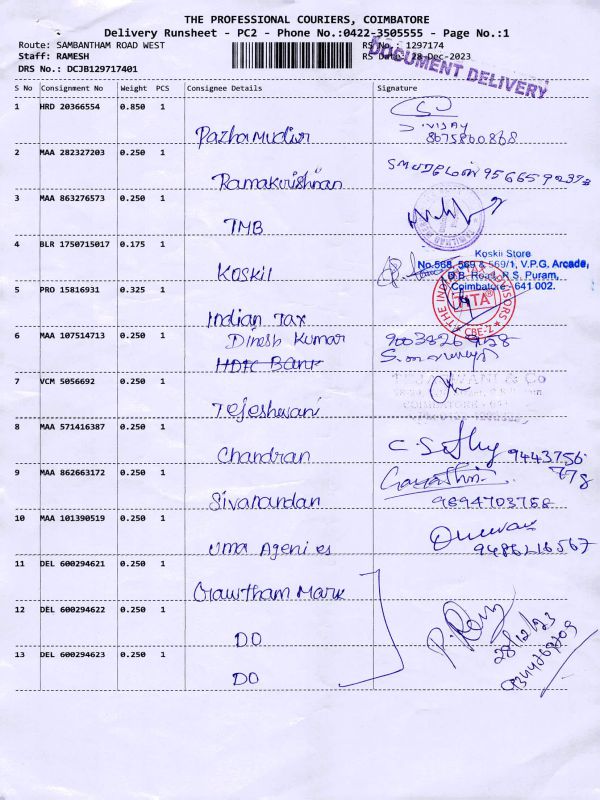 THE PROFESSIONAL COURIERS, COIMBATORE
Delivery Runsheet - PC2 - Phone No.:0422-3505555 - Page No.:1
Route: SAMBANTHAM ROAD WEST
RS No.: 1297174
Staff: RAMESH
RS Date: 28-Dec-2023
DRS No.: DCJB129717401
DOCUMENT DELIVERY
S No Consignment No Weight PCS Consignee Details Signature
1 HRD 20366554 0.850 1
Pazhamudir
S. VIJAY
8675860868
2 MAA 282327203 0.250 1
Ramakrishnan
3 MAA 863276573 0.250 1
TMB
4 BLR 1750715017 0.175 1
Koskii
Koskii Store
No.568, 569 & 569/1, V.P.G. Arcade,
D.B. Road, R.S. Puram,
Coimbatore - 641 002.
5 PRO 15816931 0.325 1
Indian Tax
THE INDIAN TAX ADVISORS
ITA
CBE-2
6 MAA 107514713 0.250 1
Dinesh Kumar
HDFC Bank
7 VCM 5056692 0.250 1
Tejeshwani
& Co
8 MAA 571416387 0.250 1
Chandran
9443756
778
9 MAA 862663172 0.250 1
Sivanandan
Gayathri
9894703758
10 MAA 101390519 0.250 1
Uma Agenies
9486216567
11 DEL 600294621 0.250 1
Gawtham Mark
12 DEL 600294622 0.250 1
DO
28/12/23
13 DEL 600294623 0.250 1
DO